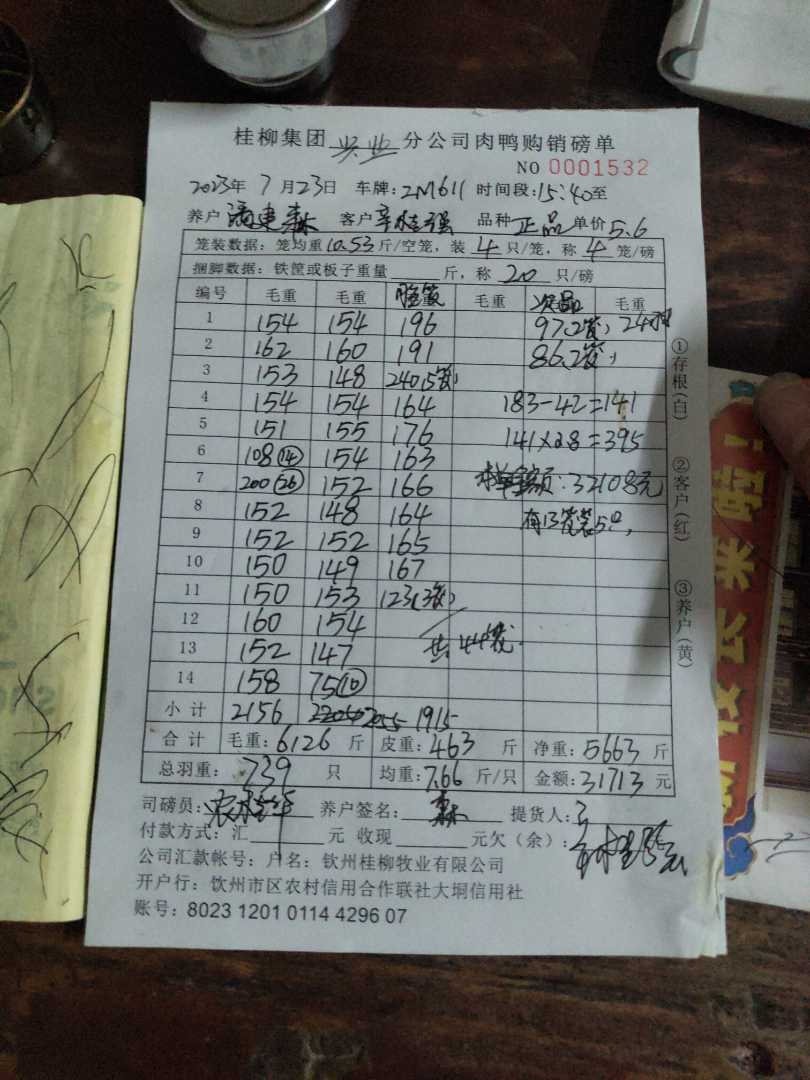 桂柳集团 兴业 分公司肉鸭购销磅单
NO 0001532
2023年 7 月 23日 车牌: 2M611 时间段: 15:40至
养户 潘建森 客户 强 品种 正品 单价 5.6
笼装数据: 笼均重 10.53 斤/空笼, 装 4 只/笼, 称 4 笼/磅
捆脚数据: 铁筐或板子重量 斤, 称 20 只/磅
编号 毛重 毛重 毛重 次品 毛重
1 154 154 196 97.2
2 162 160 191 86.2
3 153 148 240(5
4 154 154 164 183-42=141
5 151 155 176 141×2.8=395
6 108(14) 154 163
7 200(26) 152 166 32108元
8 152 148 164 有13 装5只,
9 152 152 165
10 150 149 167
11 150 153 123(3
12 160 154
13 152 147 共44
14 158 75(10)
小计 2156 2055 1915
合计 毛重: 6126 斤 皮重: 463 斤 净重: 5663 斤
总羽重: 739 只 均重: 7.66 斤/只 金额: 31713 元
司磅员: 养户签名: 森 提货人:
付款方式: 汇 元 收现 元欠(余):
公司汇款帐号: 户名: 钦州桂柳牧业有限公司
开户行: 钦州市区农村信用合作联社大垌信用社
账号: 8023 1201 0114 4296 07
①存根(白)
②客户(红)
③养户(黄)